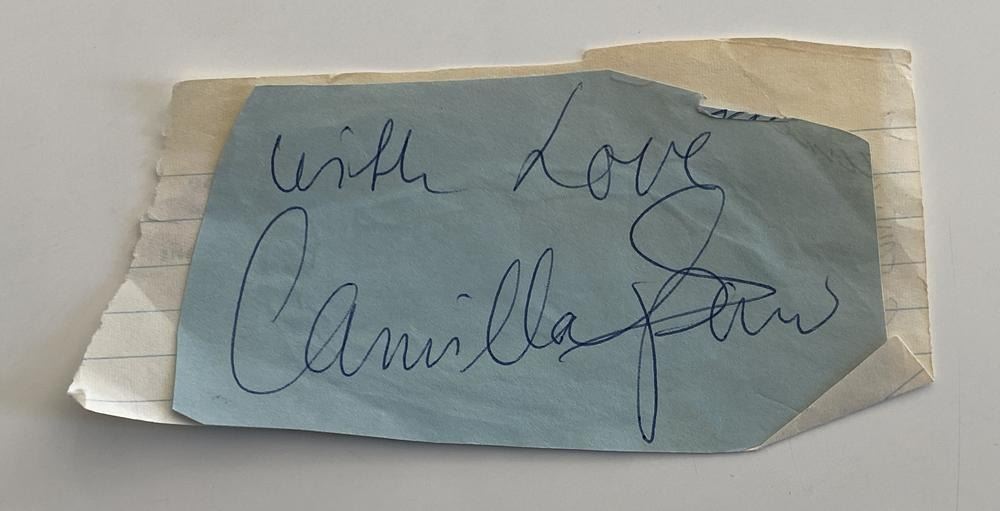 with Love
Camilla Sparv